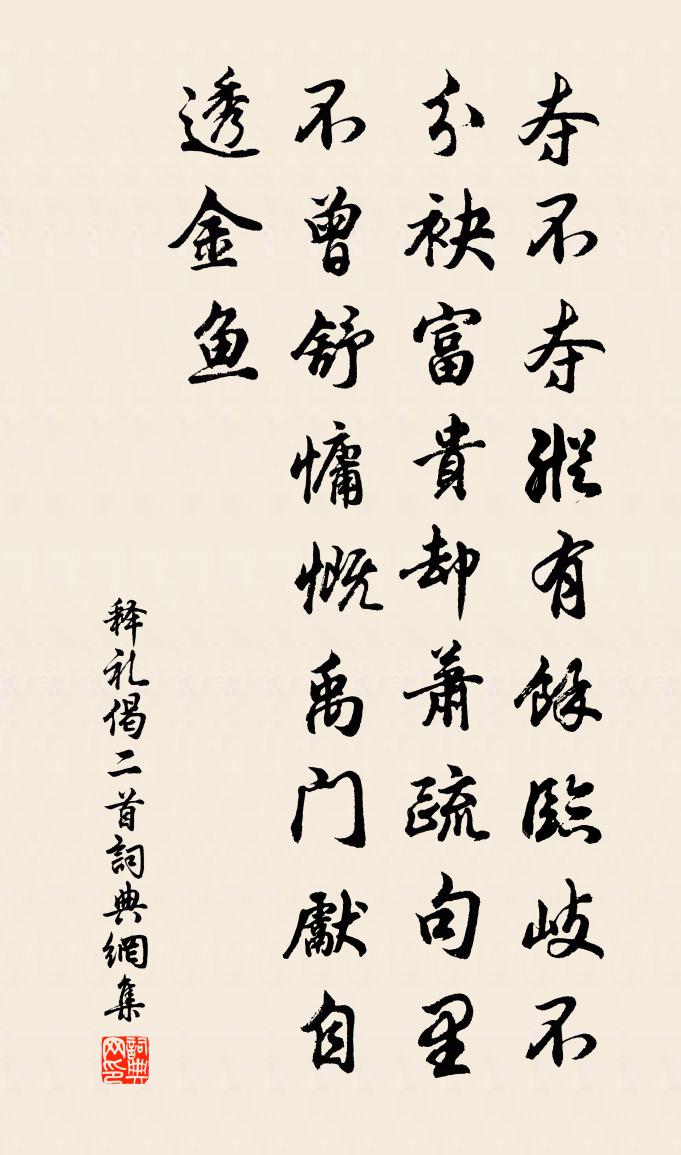 夺不夺縱有餘臨岐不
分袂富貴却蕭疏句里
不曾舒慵慨禹门獻自
透金鱼
释礼偈二首詞典網集
詞典网印